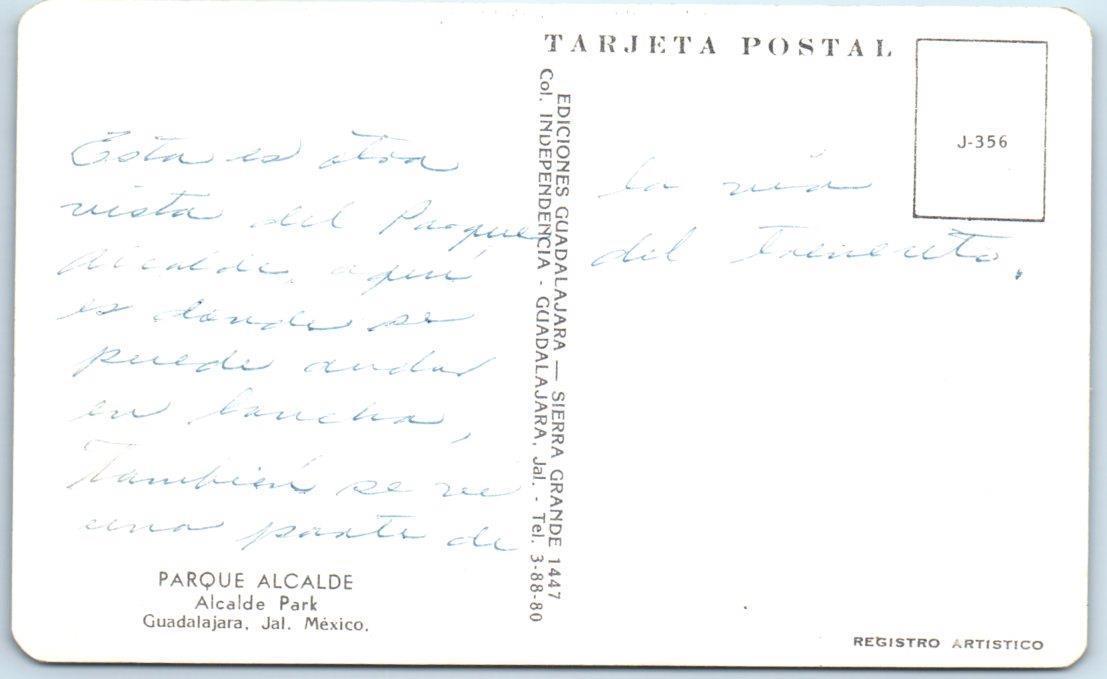 TARJETA POSTAL
J-356
Esta es otra
vista del Parque
Alcalde, aquí
es donde se
puede andar
en lancha,
También se ve
una parte de
la vía
del trenecito.
EDICIONES GUADALAJARA — SIERRA GRANDE 1447
Col. INDEPENDENCIA - GUADALAJARA, Jal. - Tel. 3-88-80
PARQUE ALCALDE
Alcalde Park
Guadalajara, Jal. México.
REGISTRO ARTISTICO